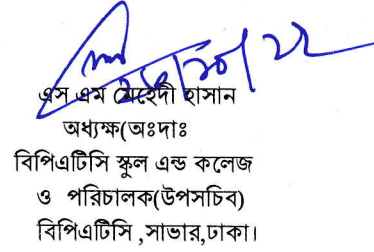 এস এম মেহেদী হাসান
অধ্যক্ষ(অঃদাঃ
বিপিএটিসি স্কুল এন্ড কলেজ
ও পরিচালক(উপসচিব)
বিপিএটিসি ,সাভার,ঢাকা।